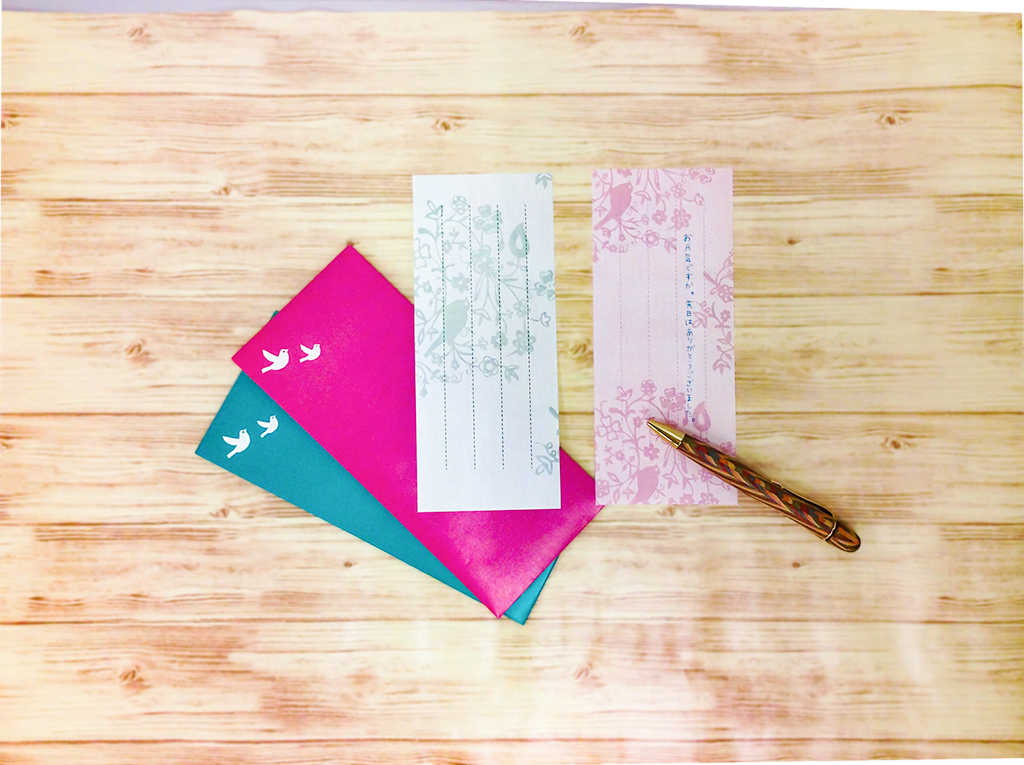 お元気ですか。先日はありがとうございました。